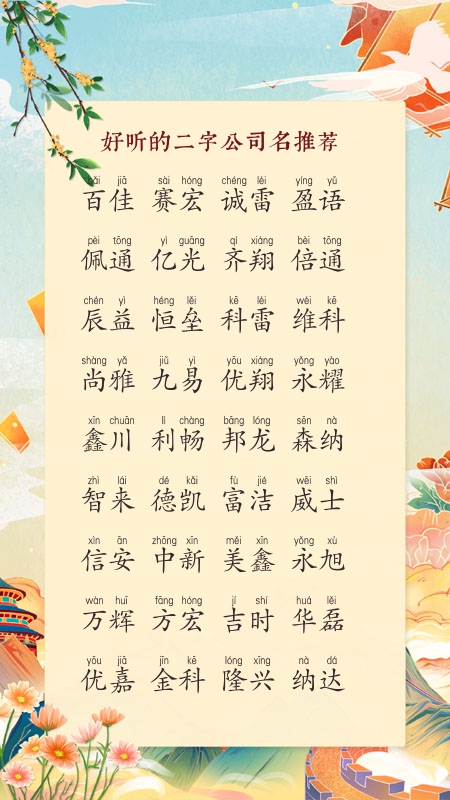 好听的二字公司名推荐
bǎi jiā sài hóng chéng léi yíng yǔ
百佳 赛宏 诚雷 盈语
pèi tōng yì guāng qí xiáng bèi tōng
佩通 亿光 齐翔 倍通
chén yì héng lěi kē léi wéi kē
辰益 恒垒 科雷 维科
shàng yǎ jiǔ yì yōu xiáng yǒng yào
尚雅 九易 优翔 永耀
xīn chuān lì chàng bāng lóng sēn nà
鑫川 利畅 邦龙 森纳
zhì lái dé kǎi fù jié wēi shì
智来 德凯 富洁 威士
xìn ān zhōng xīn měi xīn yǒng xù
信安 中新 美鑫 永旭
wàn huī fāng hóng jí shí huá lěi
万辉 方宏 吉时 华磊
yōu jiā jīn kē lóng xīng nà dá
优嘉 金科 隆兴 纳达